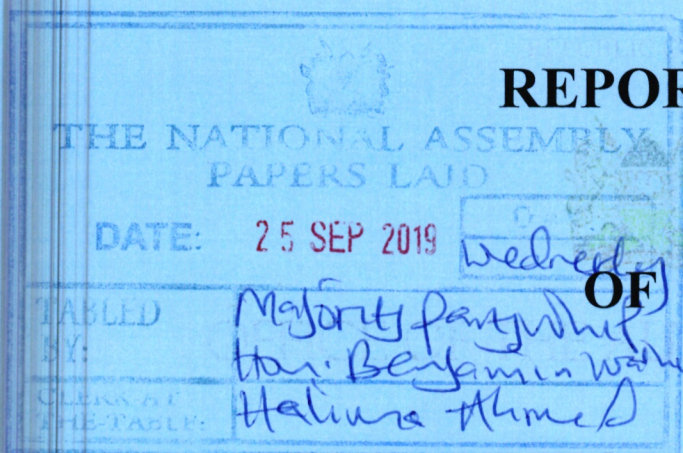 REPOR
THE NATIONAL ASSEMBLY
PAPERS LAID
DATE: 25 SEP 2019
Wednesday
OF
TABLED BY: Majority party whip
Hon. Benjamin
CLERK AT THE-TABLE: Halima Ahmed